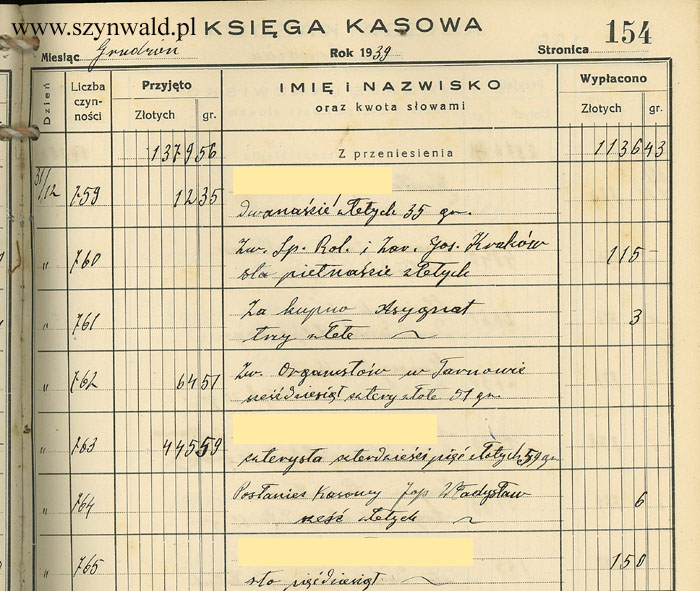 www.szynwald.pl
KSIĘGA KASOWA
154
Miesiąc Grudzień Rok 1939 Stronica
Dzień Liczba czynności Przyjęto IMIĘ I NAZWISKO Wypłacono
Złotych gr. oraz kwota słowami Złotych gr.
1379 56 Z przeniesienia 1136 43
31/12 759 12 35
dwanaście złotych 35 gr.
" 760 Zw. Sp. Rol. i Zar. Gos. Kraków
sto piętnaście złotych 115 -
" 761 Za kupno Asygnat
trzy złote 3
" 762 64 51 Zw. Organistów w Tarnowie
sześćdziesiąt cztery złote 51 gr.
" 763 445 59
czterysta czterdzieści pięć złotych 59 gr
" 764 Posłaniec Kasowy Władysław
sześć złotych 6
" 765 150
sto pięćdziesiąt